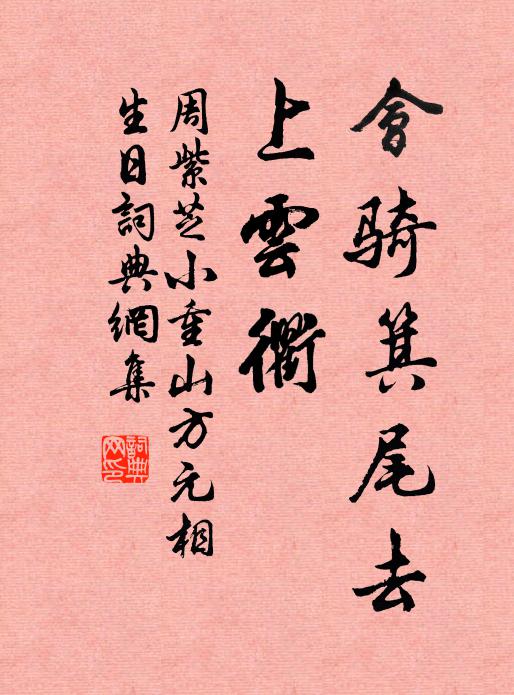 會骑箕尾去
上雲衢
周紫芝小重山方元相
生日詞典網集
詞典网印